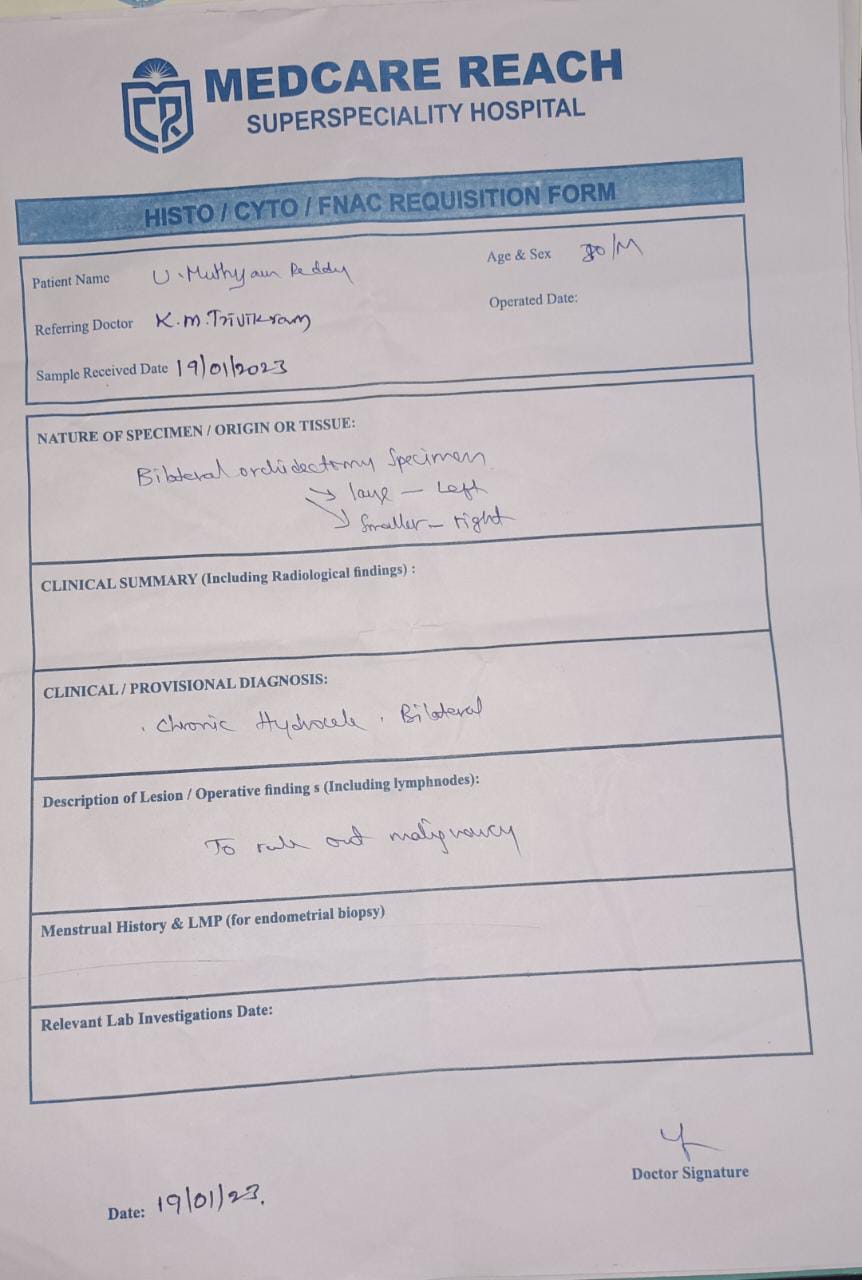 MEDCARE REACH
SUPERSPECIALITY HOSPITAL
HISTO / CYTO / FNAC REQUISITION FORM
Patient Name U. Muthyam Reddy
Age & Sex /M
Referring Doctor K.M.Trivikram
Operated Date:
Sample Received Date 19/01/2023
NATURE OF SPECIMEN / ORIGIN OR TISSUE:
Bilateral orchidectomy Specimen
→ large — Left
→ Smaller — right
CLINICAL SUMMARY (Including Radiological findings) :
CLINICAL / PROVISIONAL DIAGNOSIS:
. Chronic Hydrocele . Bilateral
Description of Lesion / Operative finding s (Including lymphnodes):
To rule out malignancy
Menstrual History & LMP (for endometrial biopsy)
Relevant Lab Investigations Date:
Doctor Signature
Date: 19/01/23.